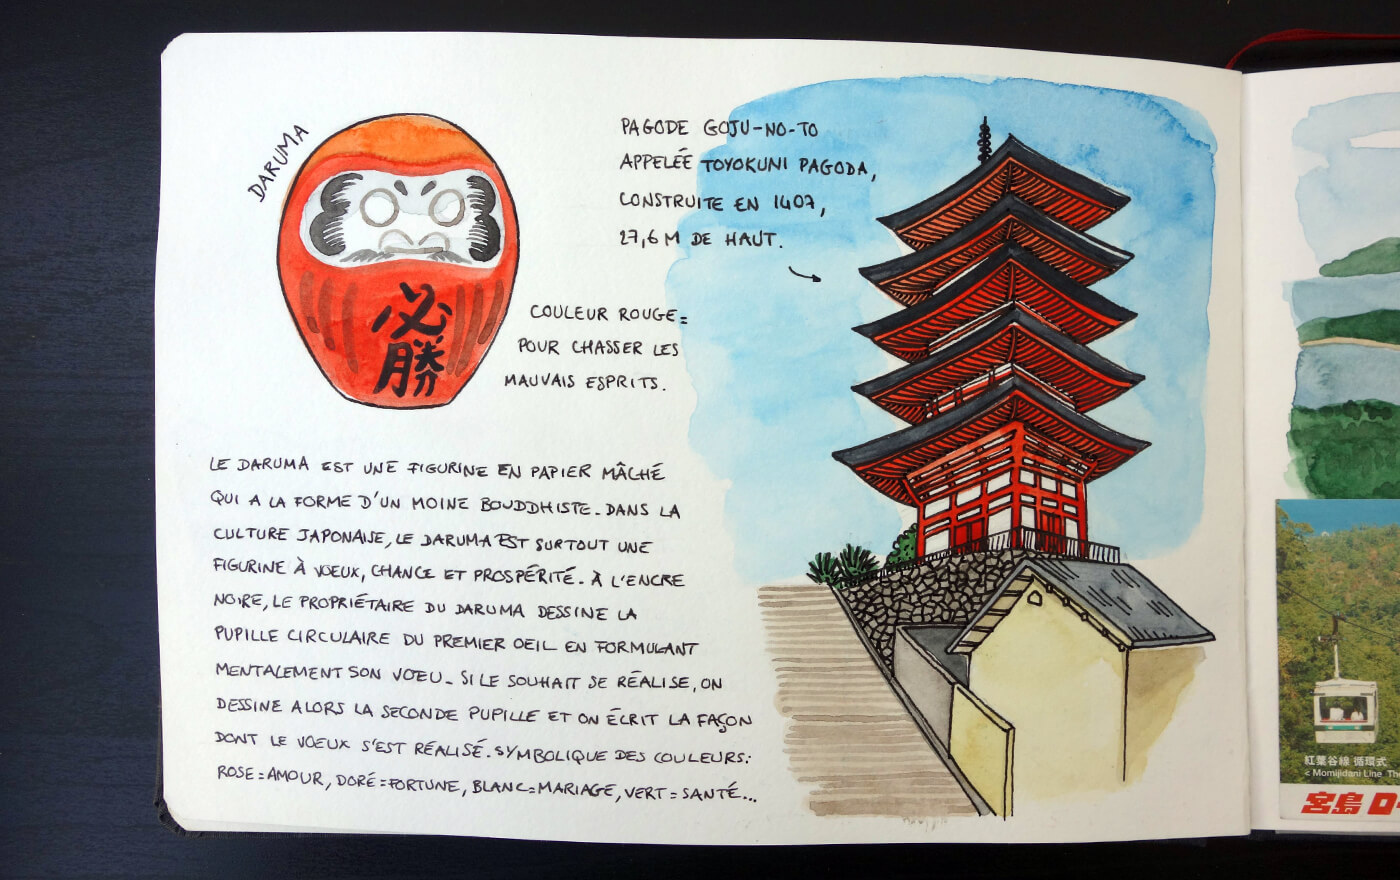 DARUMA
必勝
PAGODE GOJU-NO-TO
APPELÉE TOYOKUNI PAGODA,
CONSTRUITE EN 1407,
27,6 M DE HAUT.
COULEUR ROUGE=
POUR CHASSER LES
MAUVAIS ESPRITS.
LE DARUMA EST UNE FIGURINE EN PAPIER MÂCHÉ
QUI A LA FORME D'UN MOINE BOUDDHISTE. DANS LA
CULTURE JAPONAISE, LE DARUMA EST SURTOUT UNE
FIGURINE À VOEUX, CHANCE ET PROSPÉRITÉ. À L'ENCRE
NOIRE, LE PROPRIÉTAIRE DU DARUMA DESSINE LA
PUPILLE CIRCULAIRE DU PREMIER OEIL EN FORMULANT
MENTALEMENT SON VOEU. SI LE SOUHAIT SE RÉALISE, ON
DESSINE ALORS LA SECONDE PUPILLE ET ON ÉCRIT LA FAÇON
DONT LE VOEUX S'EST RÉALISÉ. SYMBOLIQUE DES COULEURS:
ROSE=AMOUR, DORÉ=FORTUNE, BLANC=MARIAGE, VERT=SANTÉ...
紅葉谷線 循環式
Momijidani Line Th
宮島ロ